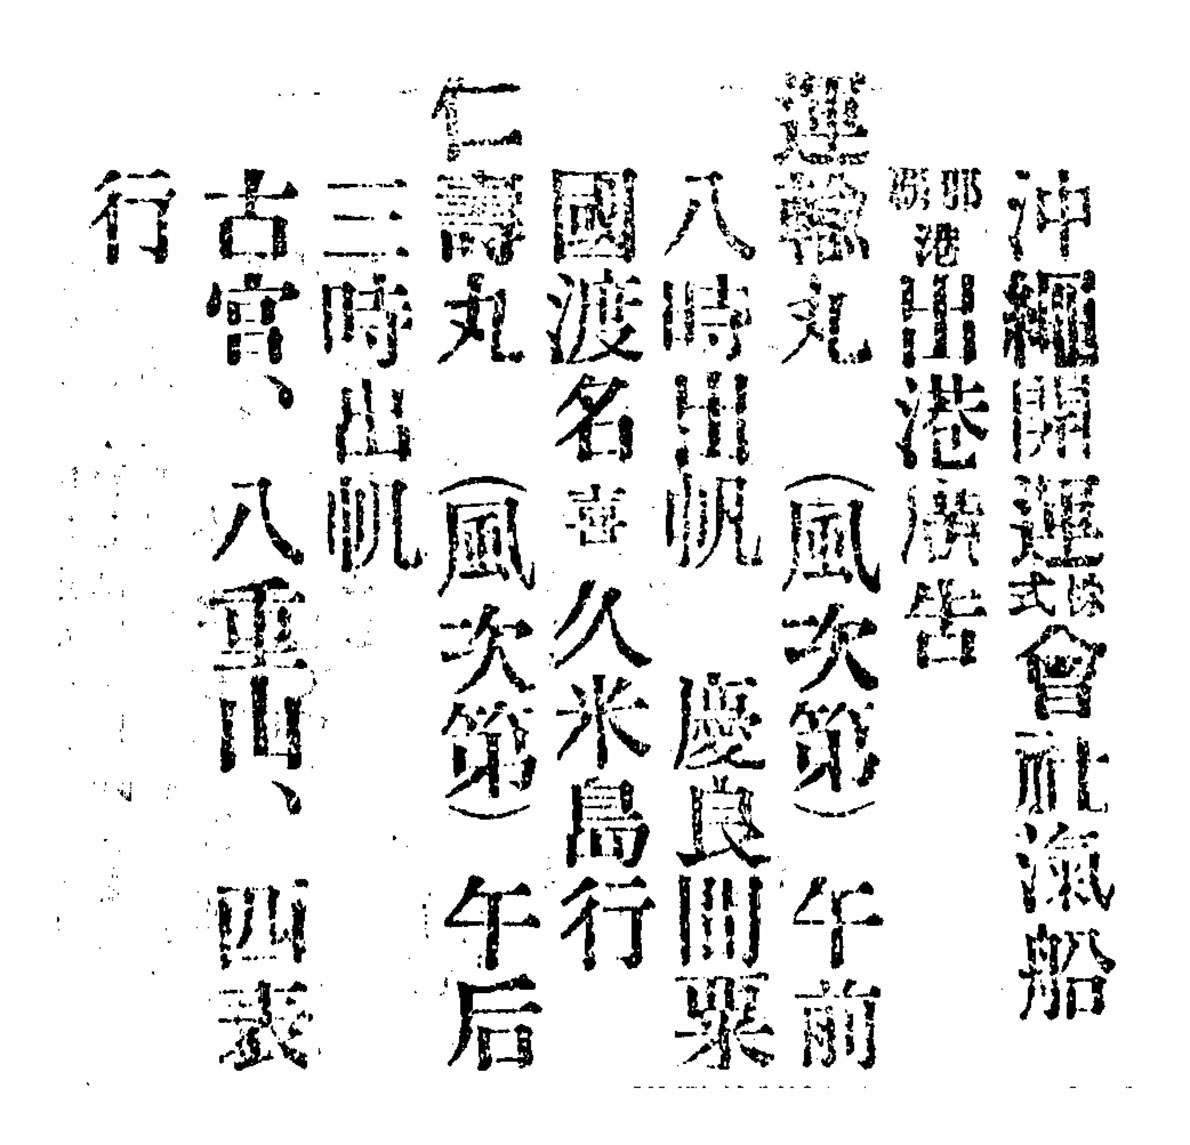 沖繩開運株式會社滊船
那覇港出港廣告
運輸丸（風次第）午前
八時出帆　慶良間粟
國渡名喜　久米島行
仁壽丸（風次第）午后
三時出帆
古宮、八重山、四表
行